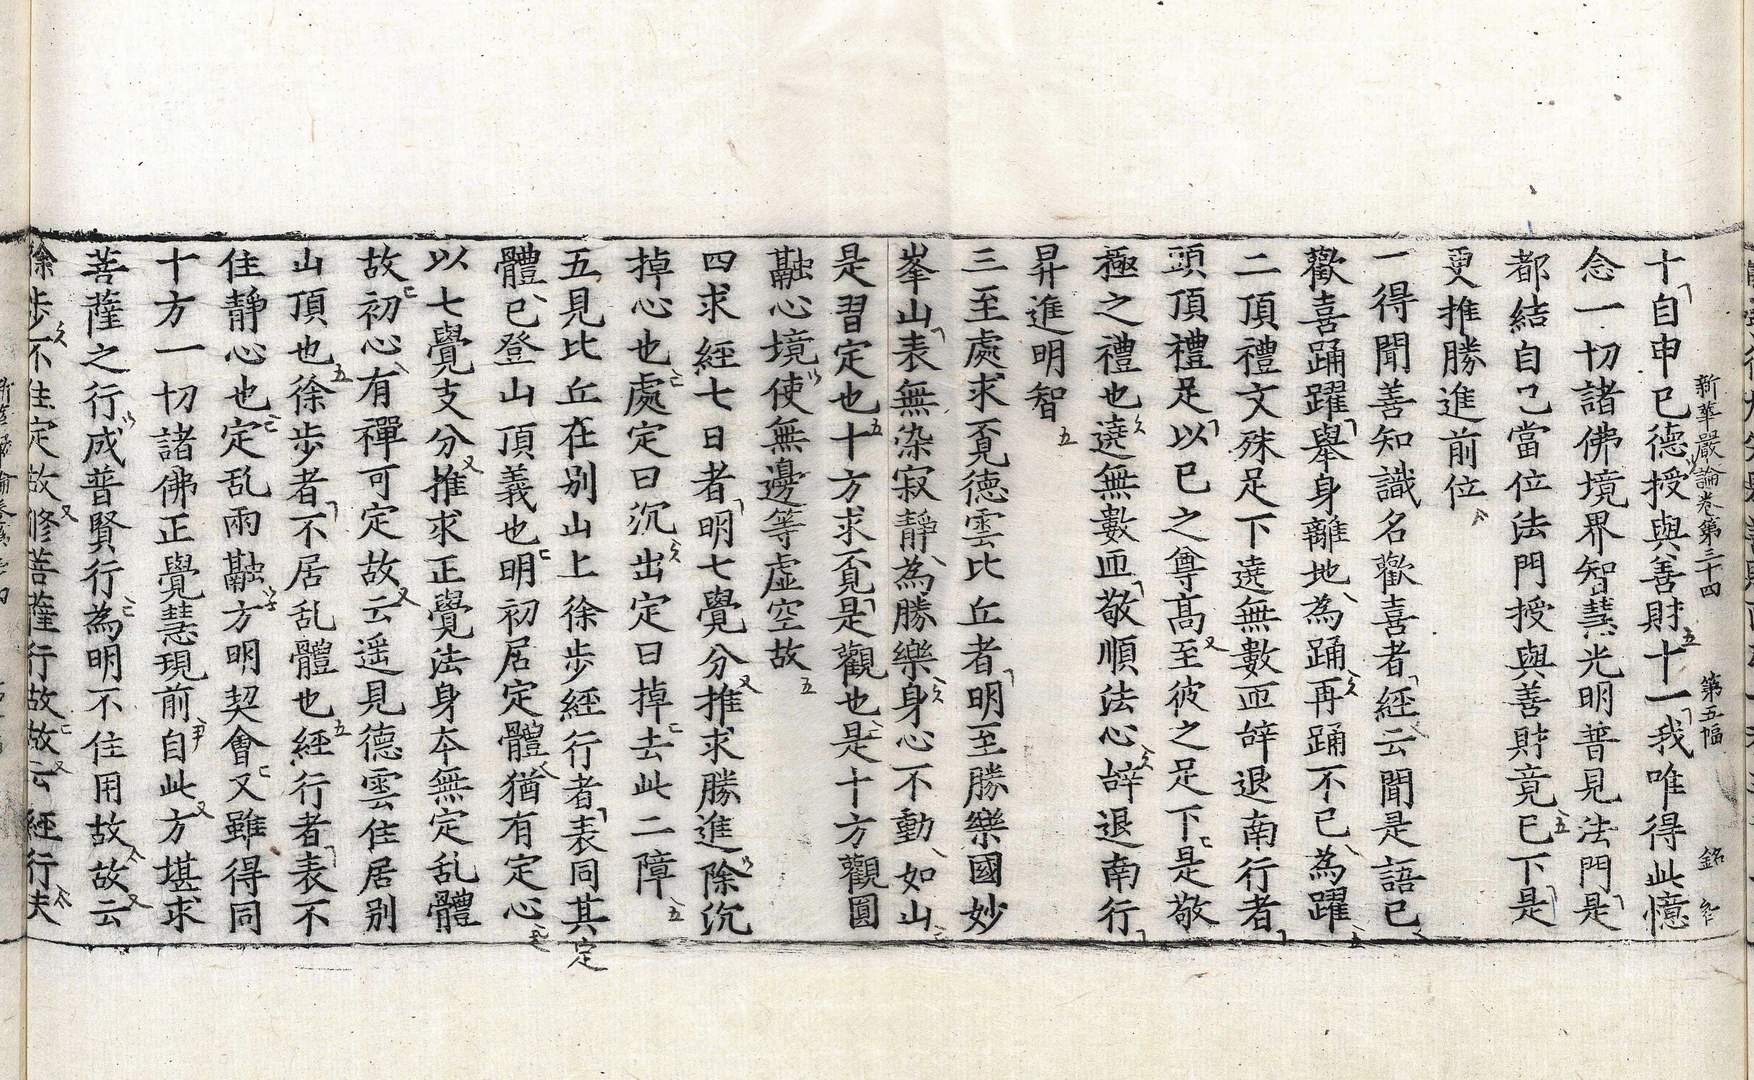 新華嚴論卷第三十四　第五幅　銘
十自申已德授與善財十一我唯得此憶
念一切諸佛境界智慧光明普見法門是
都結自己當位法門授與善財竟已下是
更推勝進前位
一得聞善知識名歡喜者經云聞是語已
歡喜踊躍舉身離地為踊再踊不已為躍
二頂禮文殊足下遶無數帀辝退南行者
頭頂禮足以已之尊高至彼之足下是敬
極之禮也遶無數帀敬順法心辝退南行
昇進明智
三至處求覓德雲比丘者明至勝樂國妙
峯山表無染寂靜為勝樂身心不動如山
是習定也十方求覓是觀也是十方觀圓
融心境使無邊等虛空故
四求經七日者明七覺分推求勝進除沉
掉心也處定曰沉出定曰掉去此二障
五見比丘在別山上徐步經行者表同其定
體已登山頂義也明初居定體猶有定心
以七覺支分推求正覺法身本無定乱體
故初心有禪可定故云遥見德雲住居別
山頂也徐步者不居乱體也經行者表不
住靜心也定乱兩融方明契會又雖得同
十方一切諸佛正覺慧現前自此方堪求
菩薩之行成普賢行為明不住用故故云
徐步不住定故修菩薩行故故云經行夫